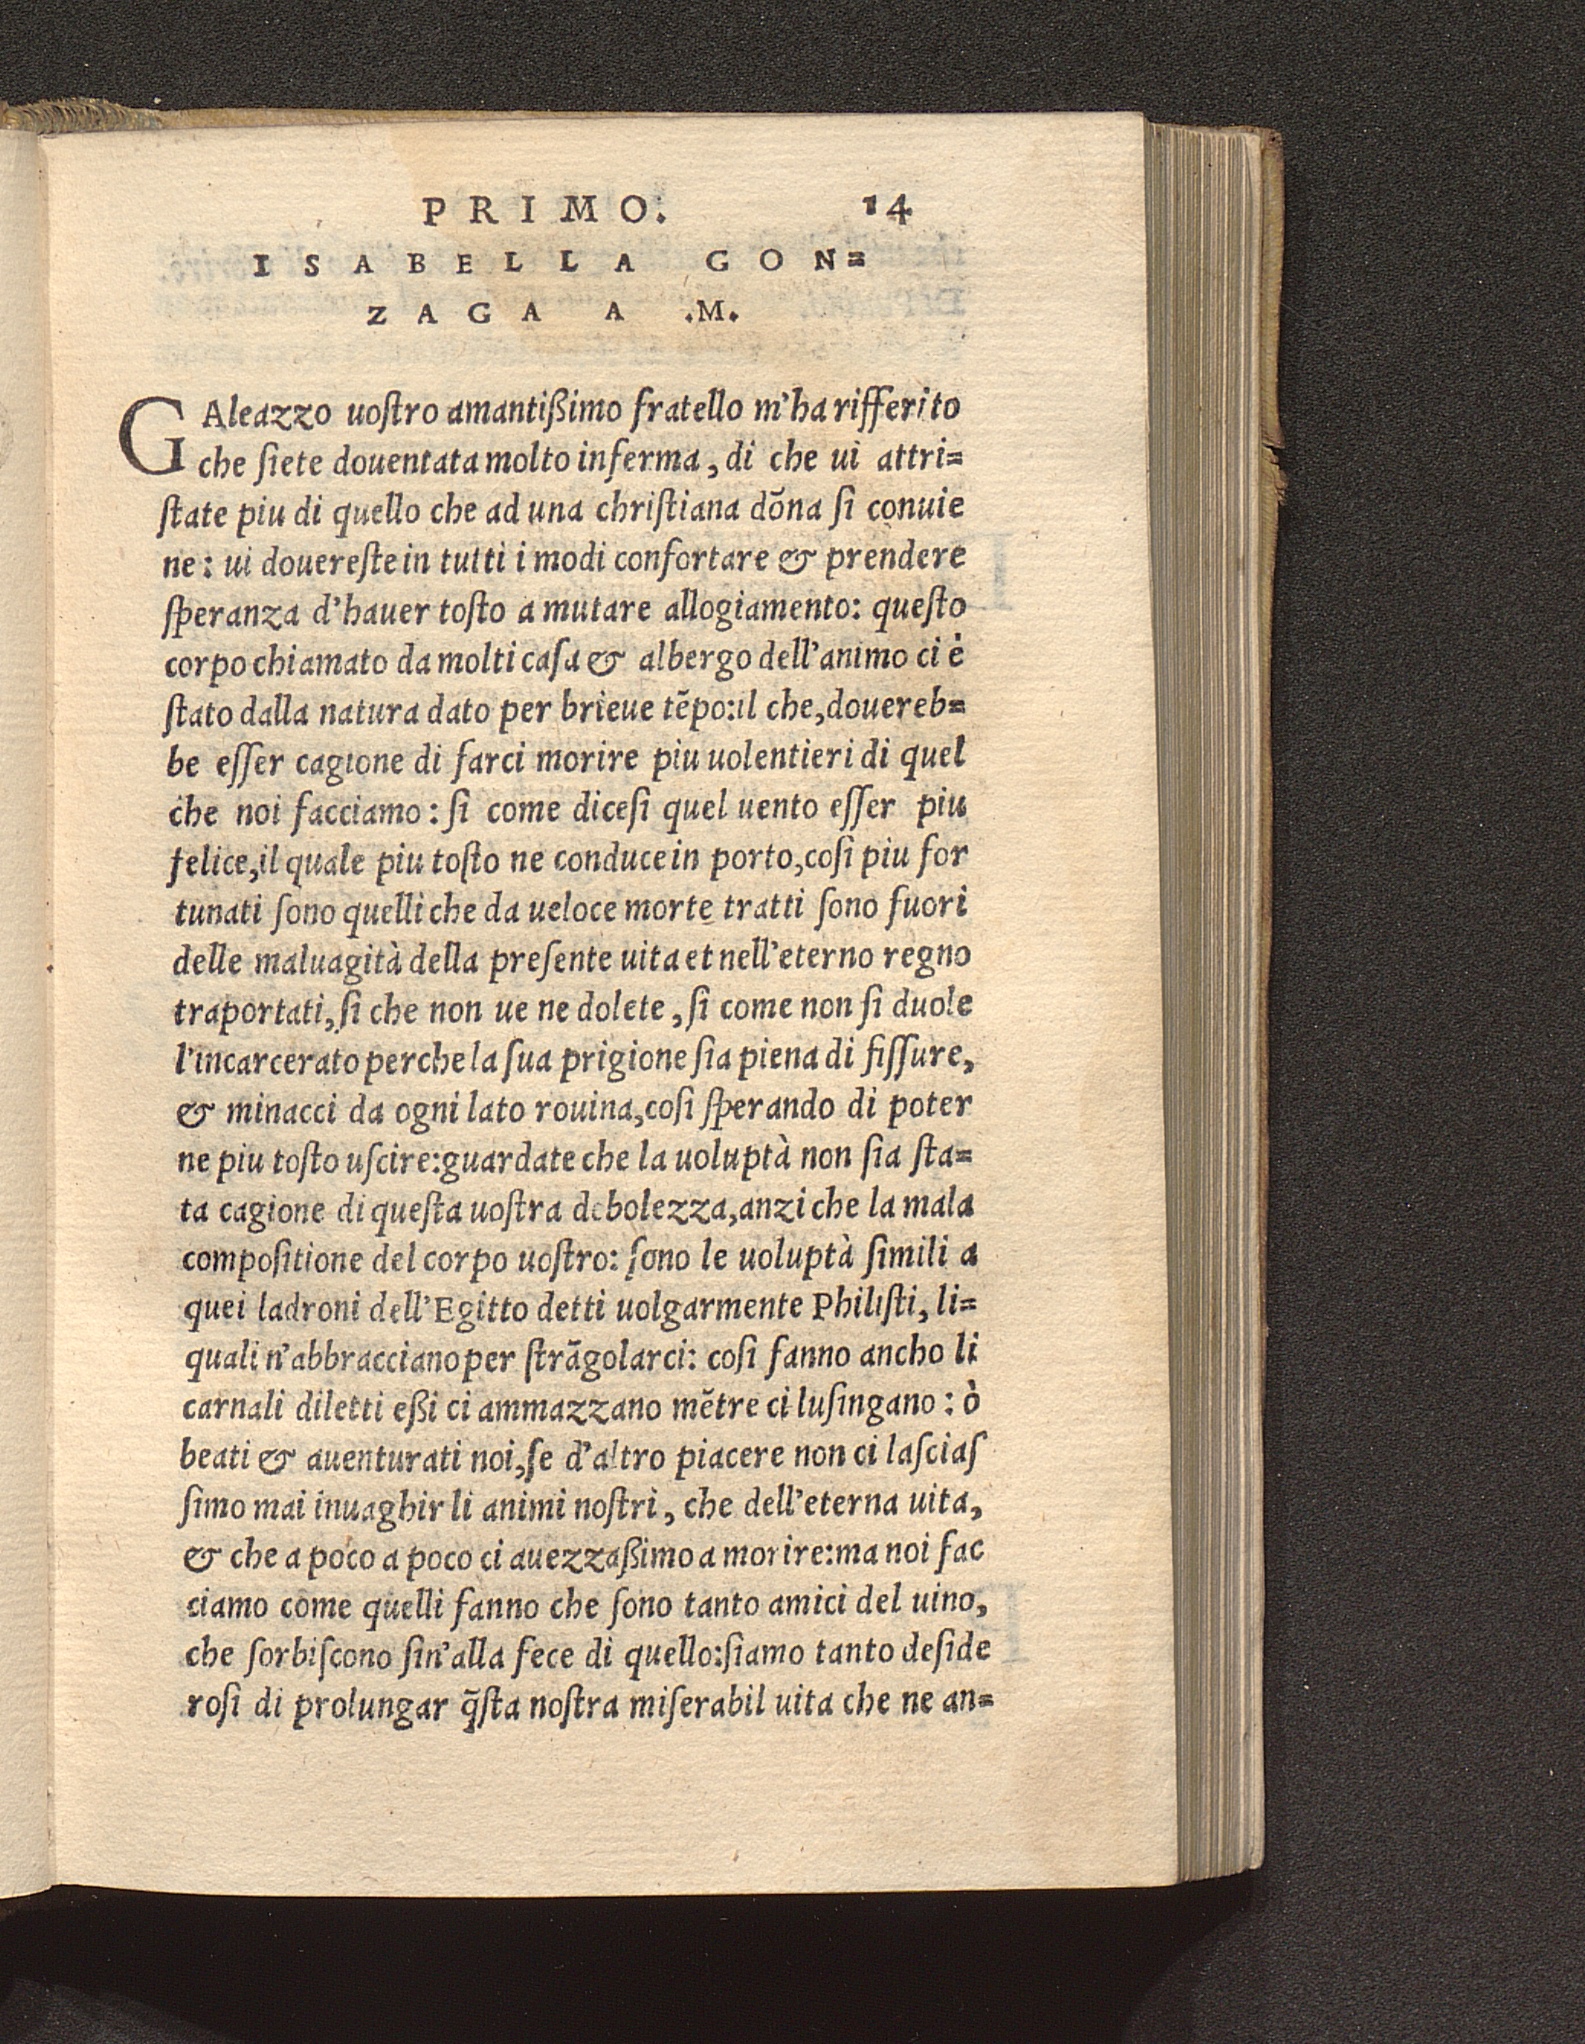 PRIMO. 14
ISABELLA GON=
ZAGA A .M.
GAleazzo uoſtro amantißimo fratello m'ha rifferito
che ſiete douentata molto inferma, di che ui attri=
ſtate piu di quello che ad una chriſtiana dõna ſi conuie
ne: ui douereſte in tutti i modi confortare & prendere
ſperanza d'hauer toſto a mutare allogiamento: queſto
corpo chiamato da molti caſa & albergo dell'animo ci è
ſtato dalla natura dato per brieue tẽpo:il che,douereb=
be eſſer cagione di farci morire piu uolentieri di quel
che noi facciamo: ſi come diceſi quel uento eſſer piu
felice,il quale piu toſto ne conduce in porto,coſi piu for
tunati ſono quelli che da ueloce morte tratti ſono fuori
delle maluagità della preſente uita et nell'eterno regno
traportati,ſi che non ue ne dolete, ſi come non ſi duole
l'incarcerato perche la ſua prigione ſia piena di fiſſure,
& minacci da ogni lato rouina,coſi ſperando di poter
ne piu toſto uſcire:guardate che la uoluptà non ſia ſta=
ta cagione di queſta uoſtra debolezza,anzi che la mala
compoſitione del corpo uoſtro: ſono le uoluptà ſimili a
quei ladroni dell'Egitto detti uolgarmente Philiſti, li=
quali n'abbracciano per ſtrãgolarci: coſi fanno ancho li
carnali diletti eßi ci ammazzano mẽtre ci luſingano: ò
beati & auenturati noi,ſe d'altro piacere non ci laſciaſ
ſimo mai inuaghir li animi noſtri, che dell'eterna uita,
& che a poco a poco ci auezzaßimo a morire:ma noi fac
ciamo come quelli fanno che ſono tanto amici del uino,
che ſorbiſcono ſin'alla fece di quello:ſiamo tanto deſide
roſi di prolungar q̃ſta noſtra miſerabil uita che ne an=